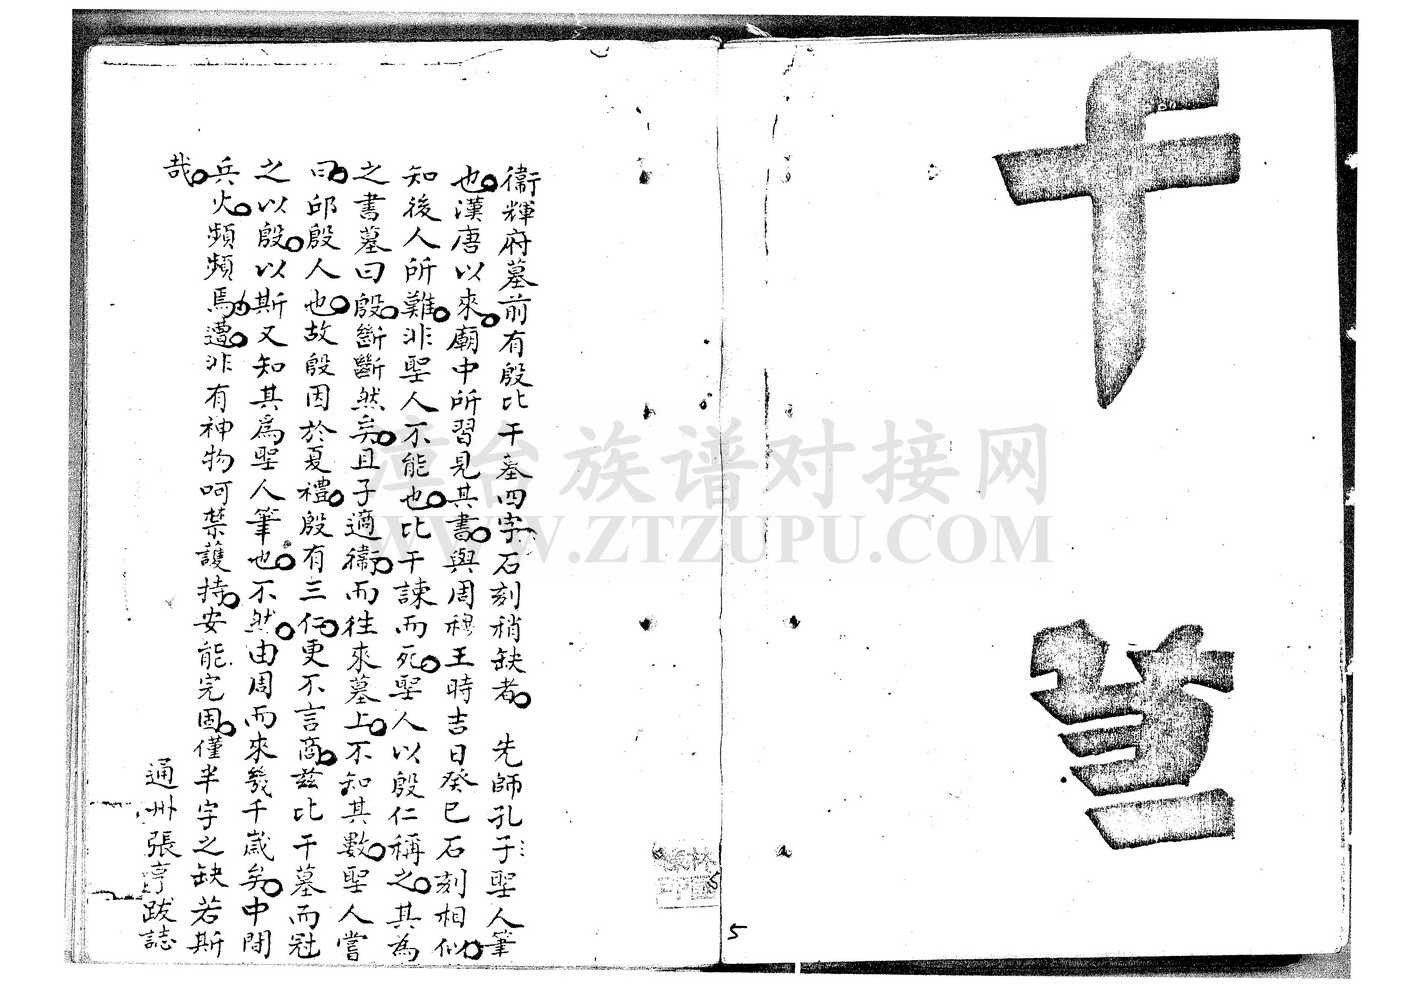 干
墓
衞輝府墓前有殷比干墓四字石刻稍缺者先師孔子聖人筆
也漢唐以來廟中所習見其書與周穆王時吉日癸巳石刻相似
知後人所難非聖人不能也比干諫而死聖人以殷仁稱之其為
之書墓曰殷斷斷然矣且子適衞而往來墓上不知其數聖人嘗
曰邱殷人也故殷因於夏禮殷有三仁更不言商茲比干墓而冠
之以殷以斯又知其爲聖人筆也不然由周而來幾千歲矣中間
兵火頻頻焉遭非有神物呵禁護持安能完固僅半字之缺若斯
哉
通州張亨跋誌
5
5
庫台族谱对接网
WWW.ZTZUPU.COM